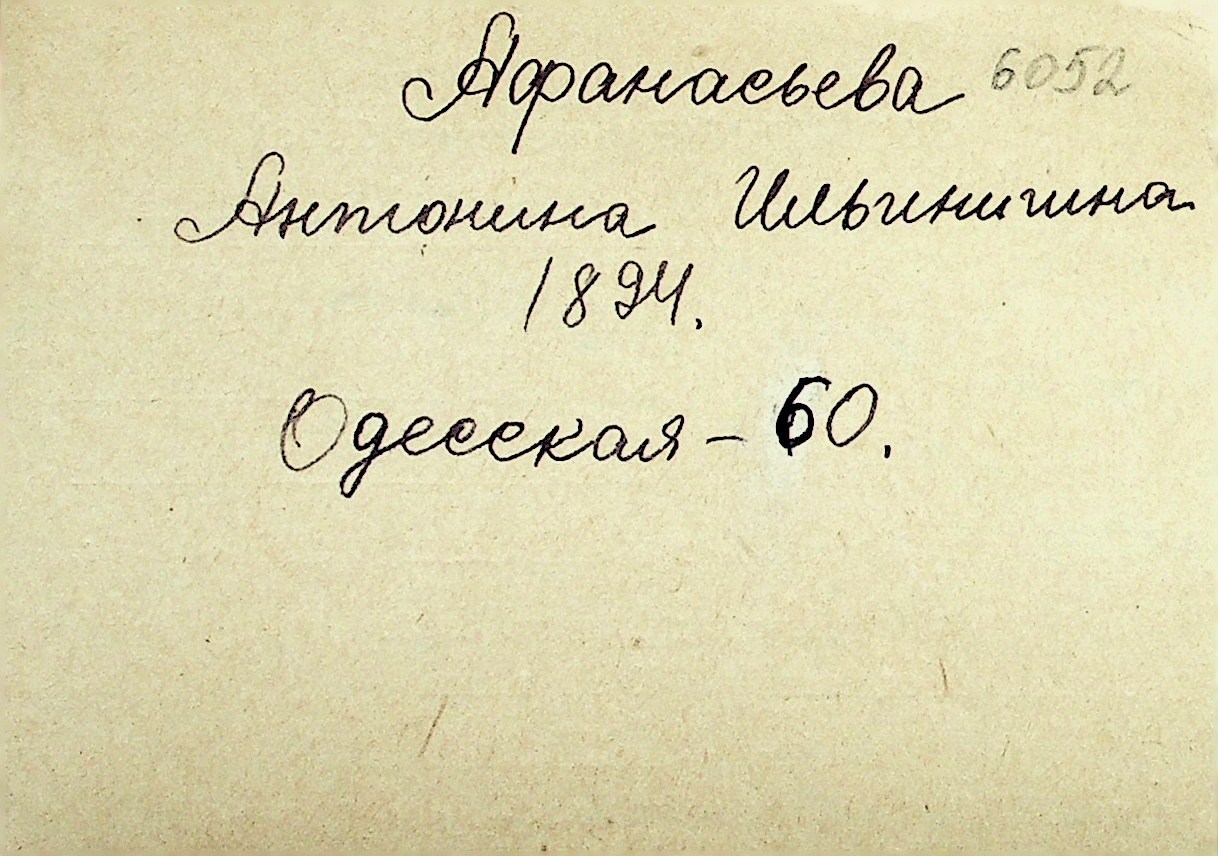 Афанасьева 6052
Антонина Ильинична
1894.
Одесская – 60.